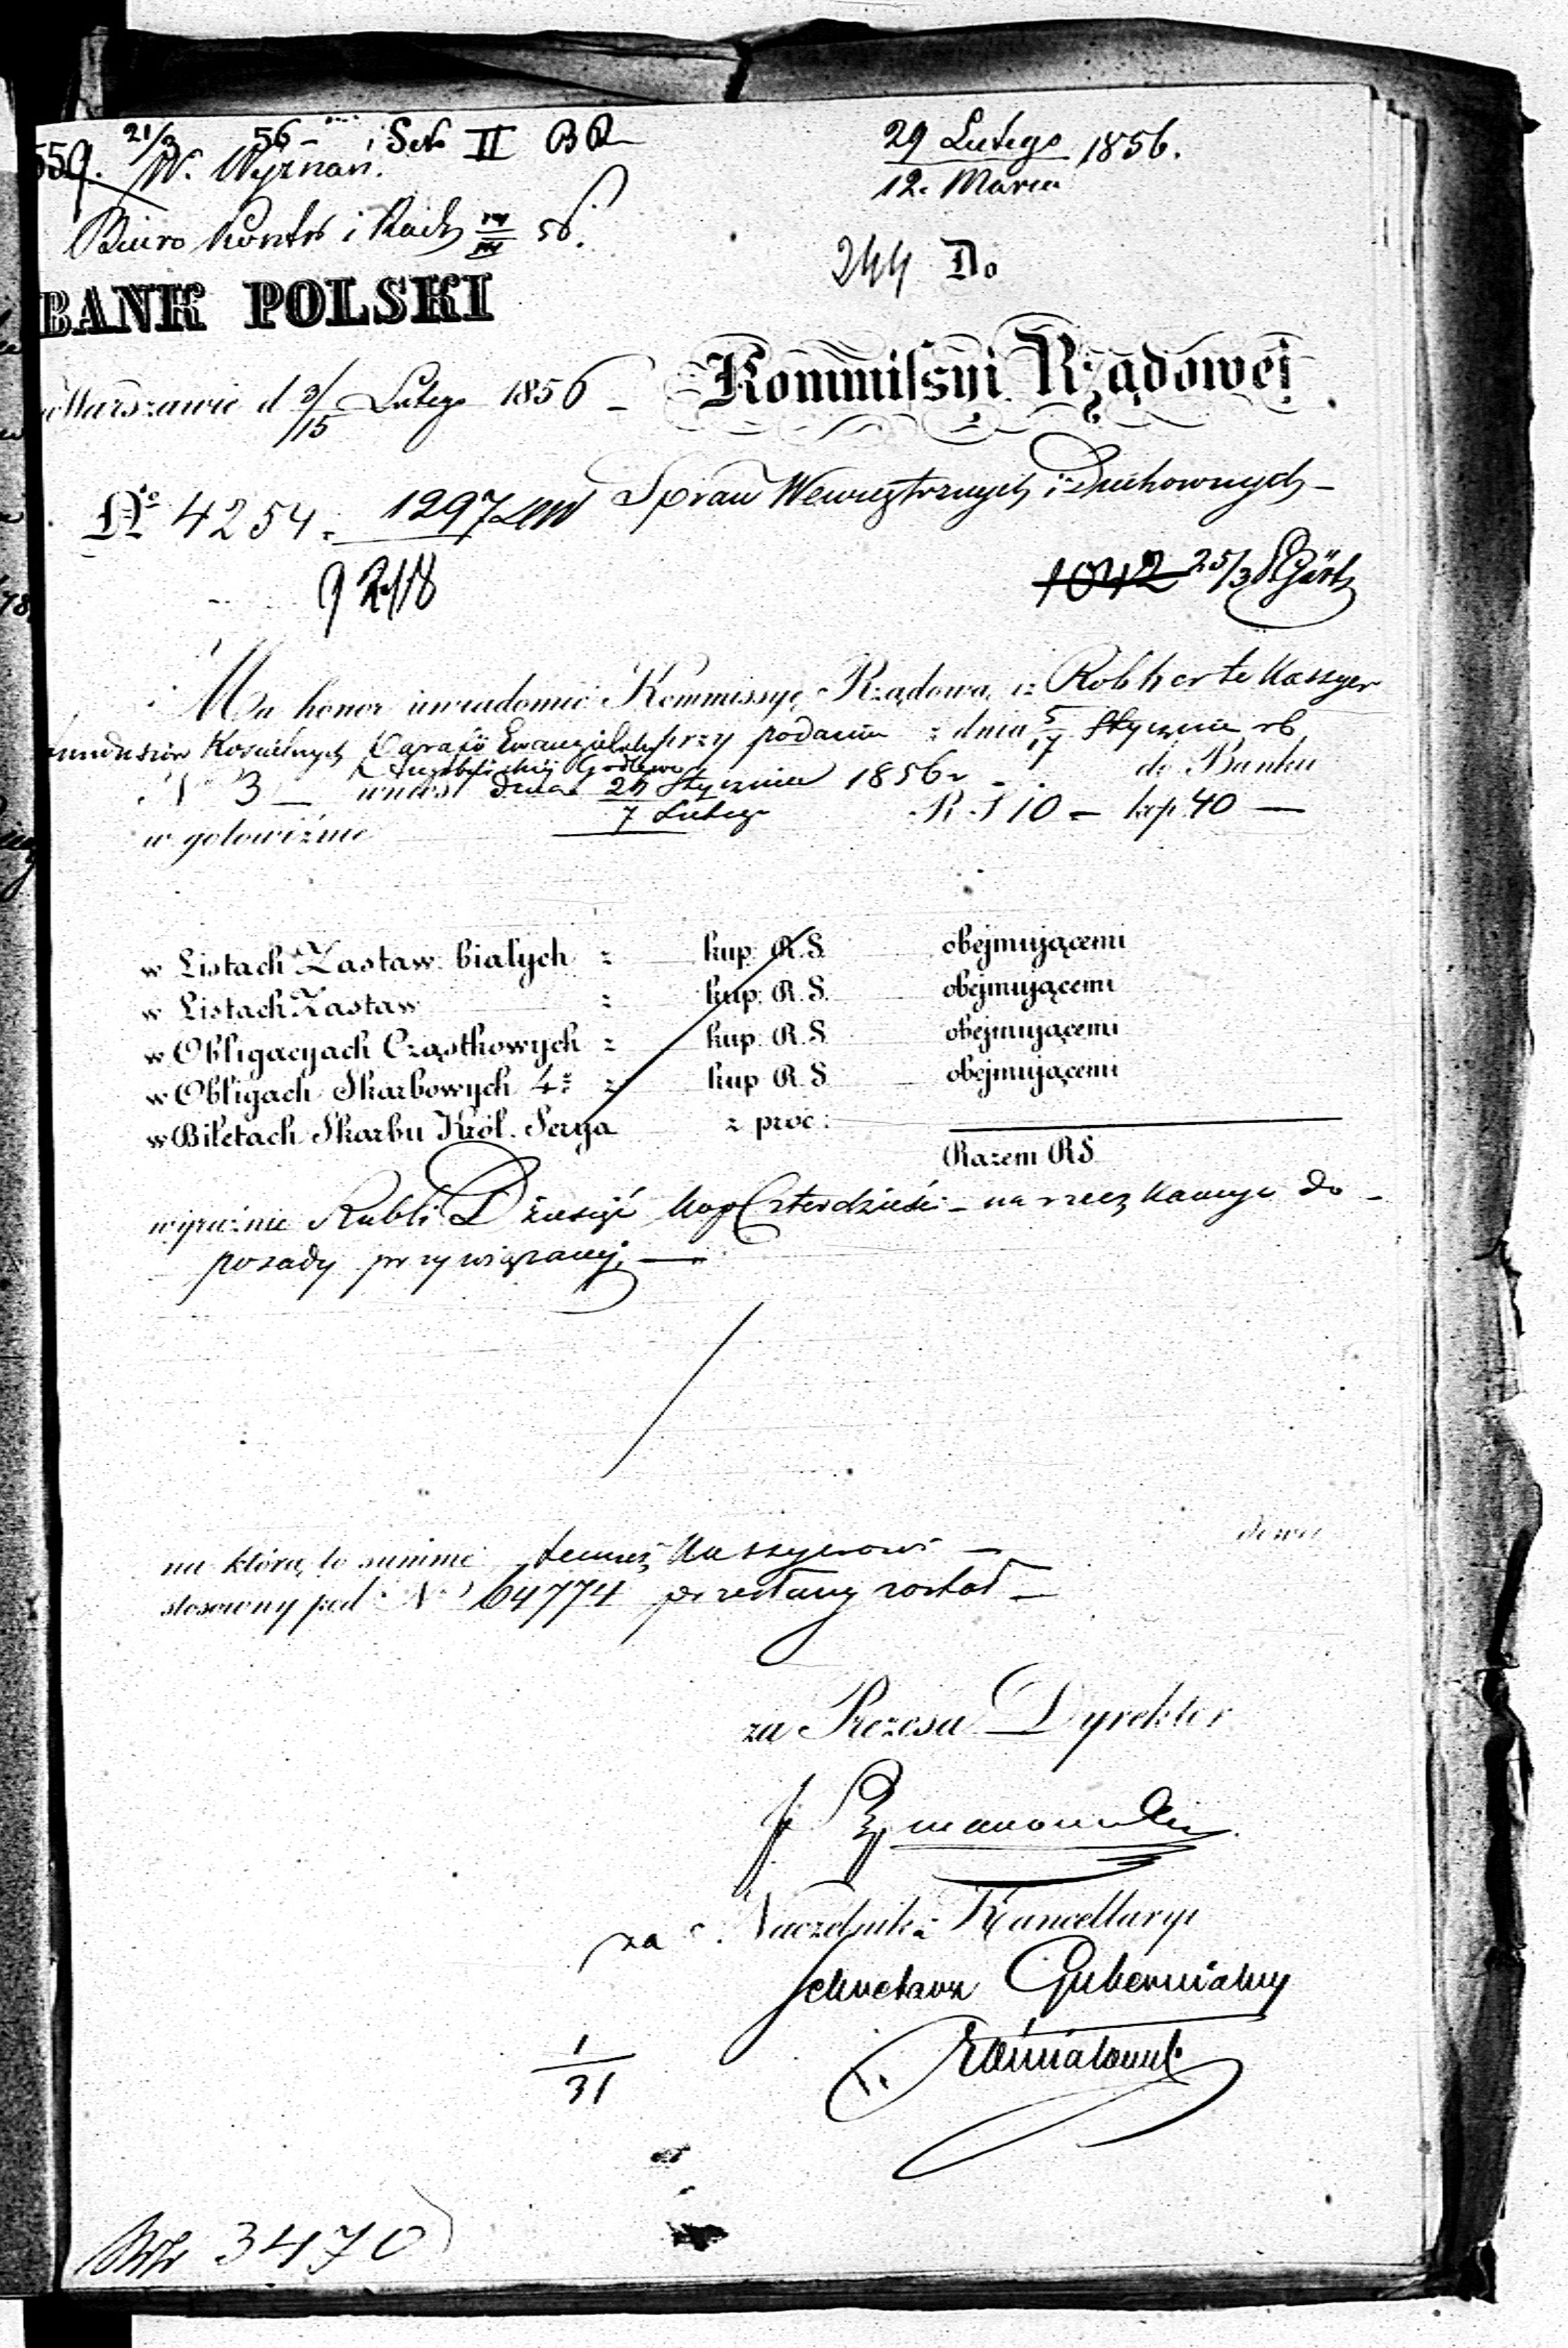 559. 21/3 56 Sek II
W. Wyznań.
29 Lutego
12. Marca 1856.
Biuro Kontr i Rach 56.
244 Do
BANK POLSKI
Kommissyi Rządowej
w Warszawie d 3/15 Lutego 1856
Spraw Wewnętrznych i Duchownych
No 4254. 1297
9248
1042 25/3
Ma honor uwiadomić Kommissyę Rządową, iż Kassyer
funduszów Kościelnych Parafii Ewangielicko
Augsburskiej Godlewo przy podaniu z dnia 5/17 Stycznia rb
No 3 wniósł dnia 26 Stycznia 1856 r do Banku
7 Lutego
w gotowiźnie R. S 10 kop. 40
w Listach Zastaw. białych z kup. R.S. obejmującemi
w Listach Zastaw z kup. R.S. obejmującemi
w Obligacyach Cząstkowych z kup. R.S. obejmującemi
w Obligach Skarbowych 4% z kup R.S. obejmującemi
w Biletach Skarbu Król. Serya z proc:
Razem RS
wyraźnie Rubli Dziesięć kop Czterdzieści na rzecz kaucyi do
posady przywiązanej.
na którą to summę temuż Kassyerowi dowód
stosowny pod No 64774 przesłany został
za Prezesa Dyrektor
za Naczelnika Kancellaryi
Sekretarz Gubernialny
1
31
3470